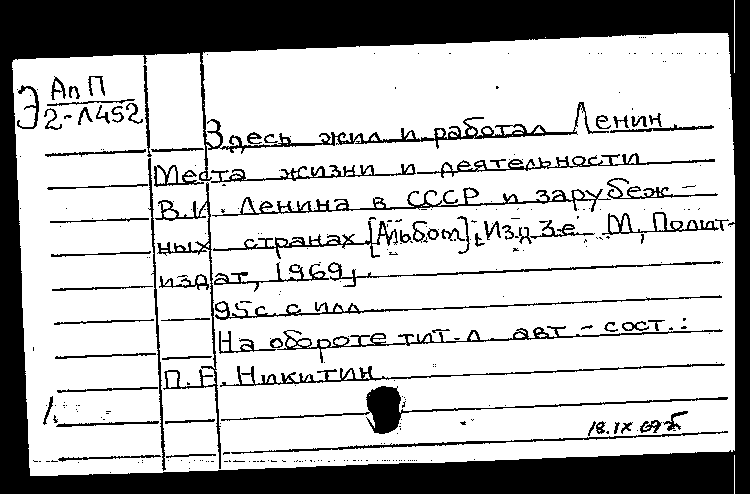 Э АпП
2-Л452
Здесь жил и работал Ленин.
Места жизни и деятельности
В.И. Ленина в СССР и зарубеж-
ных странах. [Альбом]. Изд. 3-е. М., Полит-
издат, 1969.
95с. с илл.
На обороте тит. л. авт.-сост.:
П. Е. Никитин.
18.IX.69